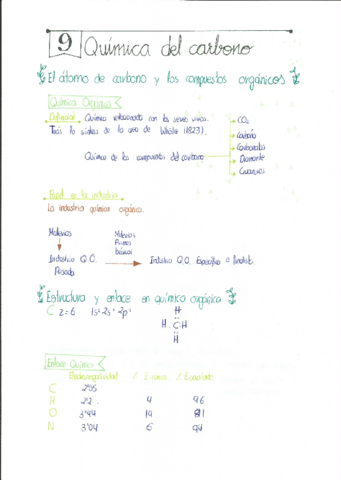 9 Química del carbono
El átomo de carbono y los compuestos orgánicos
Química Orgánica
Definición Química relacionada con los seres vivos.
Tras la síntesis de la urea de Wöhler (1823).
Química de los compuestos del carbono
CO₂
Carbonatos
Diamante
Papel en la industria
La industria química orgánica.
Materias
Materias
Primas
básicas
Industria Q.O.
Pesada
Industria Q.O. Específica o
Estructura y enlace en química orgánica
C z=6 1s² 2s² 2p²
H
H : C : H
H
Enlace Químico
Electronegatividad % E. iónico % E. covalente
C 2'55
H 2'2 4 96
O 3'44 19 81
N 3'04 6 94